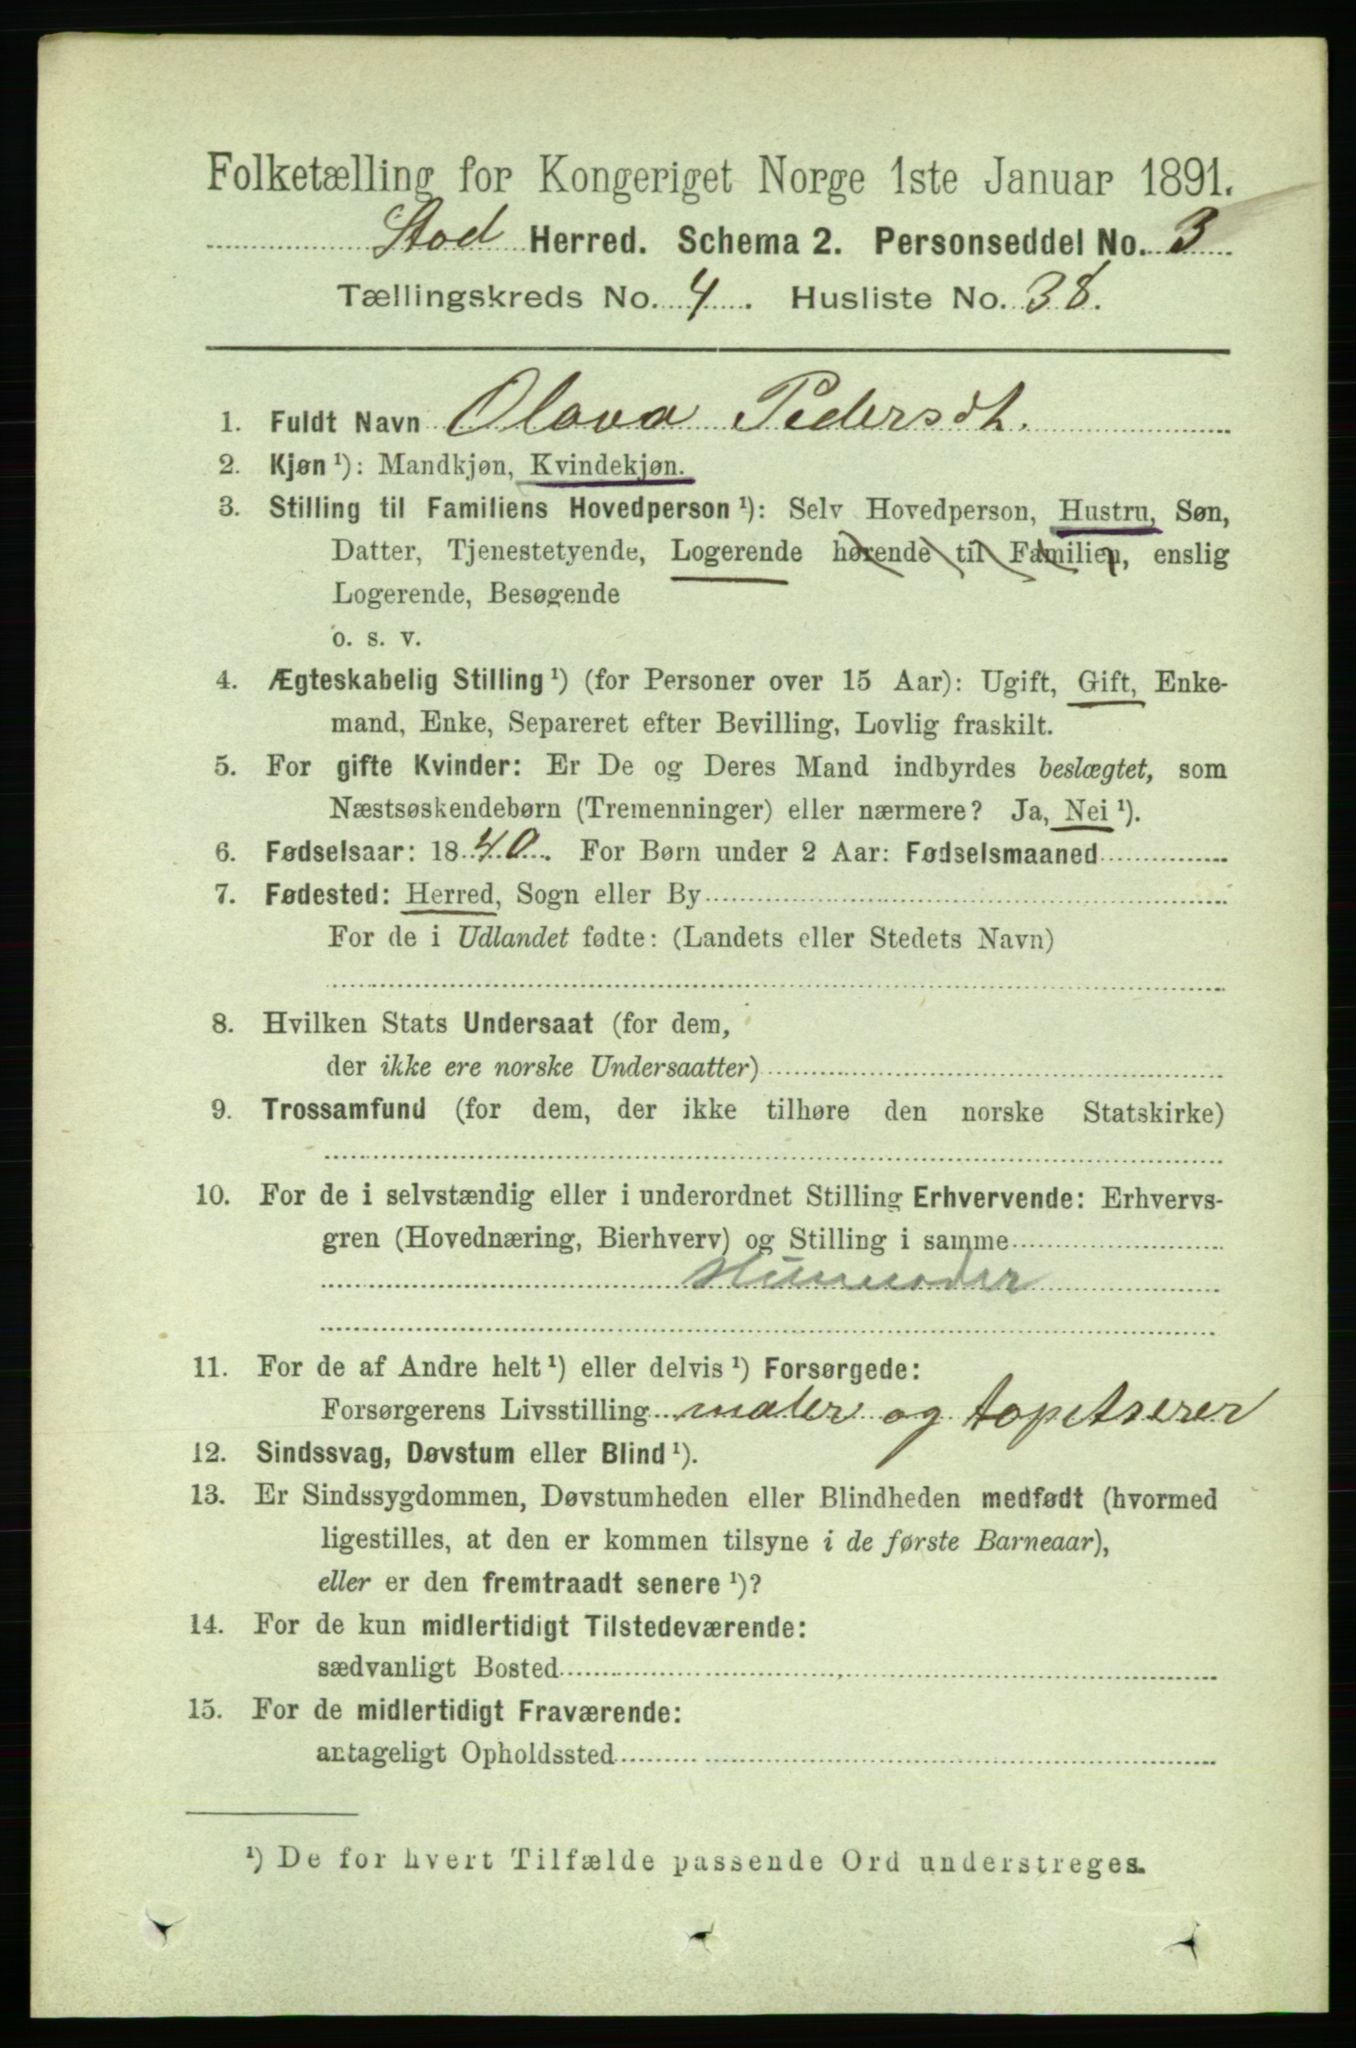 Folketælling for Kongeriget Norge 1ste Januar 1891.
Stod Herred. Schema 2. Personseddel No. 3
Tællingskreds No. 4. Husliste No. 38.
1. Fuldt Navn Olava Pedersdt.
2. Kjøn ¹): Mandkjøn, Kvindekjøn.
3. Stilling til Familiens Hovedperson ¹): Selv Hovedperson, Hustru, Søn,
Datter, Tjenestetyende, Logerende hørende til Familien, enslig
Logerende, Besøgende
o. s. v.
4. Ægteskabelig Stilling ¹) (for Personer over 15 Aar): Ugift, Gift, Enke-
mand, Enke, Separeret efter Bevilling, Lovlig fraskilt.
5. For gifte Kvinder: Er De og Deres Mand indbyrdes beslægtet, som
Næstsøskendebørn (Tremenninger) eller nærmere? Ja, Nei ¹).
6. Fødselsaar: 1840. For Børn under 2 Aar: Fødselsmaaned
7. Fødested: Herred, Sogn eller By
For de i Udlandet fødte: (Landets eller Stedets Navn)
8. Hvilken Stats Undersaat (for dem,
der ikke ere norske Undersaatter)
9. Trossamfund (for dem, der ikke tilhøre den norske Statskirke)
10. For de i selvstændig eller i underordnet Stilling Erhvervende: Erhvervs-
gren (Hovednæring, Bierhverv) og Stilling i samme
Husmoder
11. For de af Andre helt ¹) eller delvis ¹) Forsørgede:
Forsørgerens Livsstilling maler og tapetserer
12. Sindssvag, Døvstum eller Blind ¹).
13. Er Sindssygdommen, Døvstumheden eller Blindheden medfødt (hvormed
ligestilles, at den er kommen tilsyne i de første Barneaar),
eller er den fremtraadt senere ¹)?
14. For de kun midlertidigt Tilstedeværende:
sædvanligt Bosted
15. For de midlertidigt Fraværende:
antageligt Opholdssted
¹) De for hvert Tilfælde passende Ord understreges.